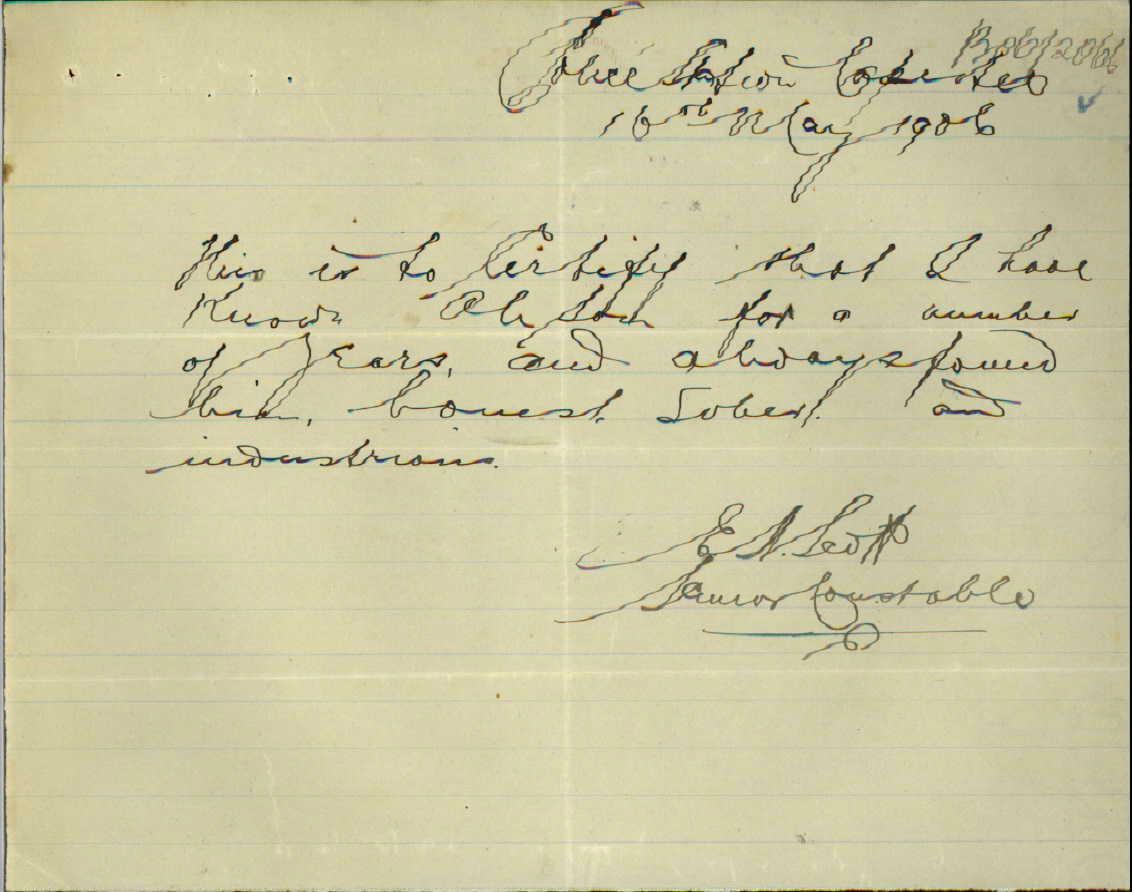 B06/2066
Police Station
16th May 1906
This is to Certify that I have
Known Ah for a number
of Years, and always found
him, honest. Sober. and
industrious.
E A. Scott
Senior Constable